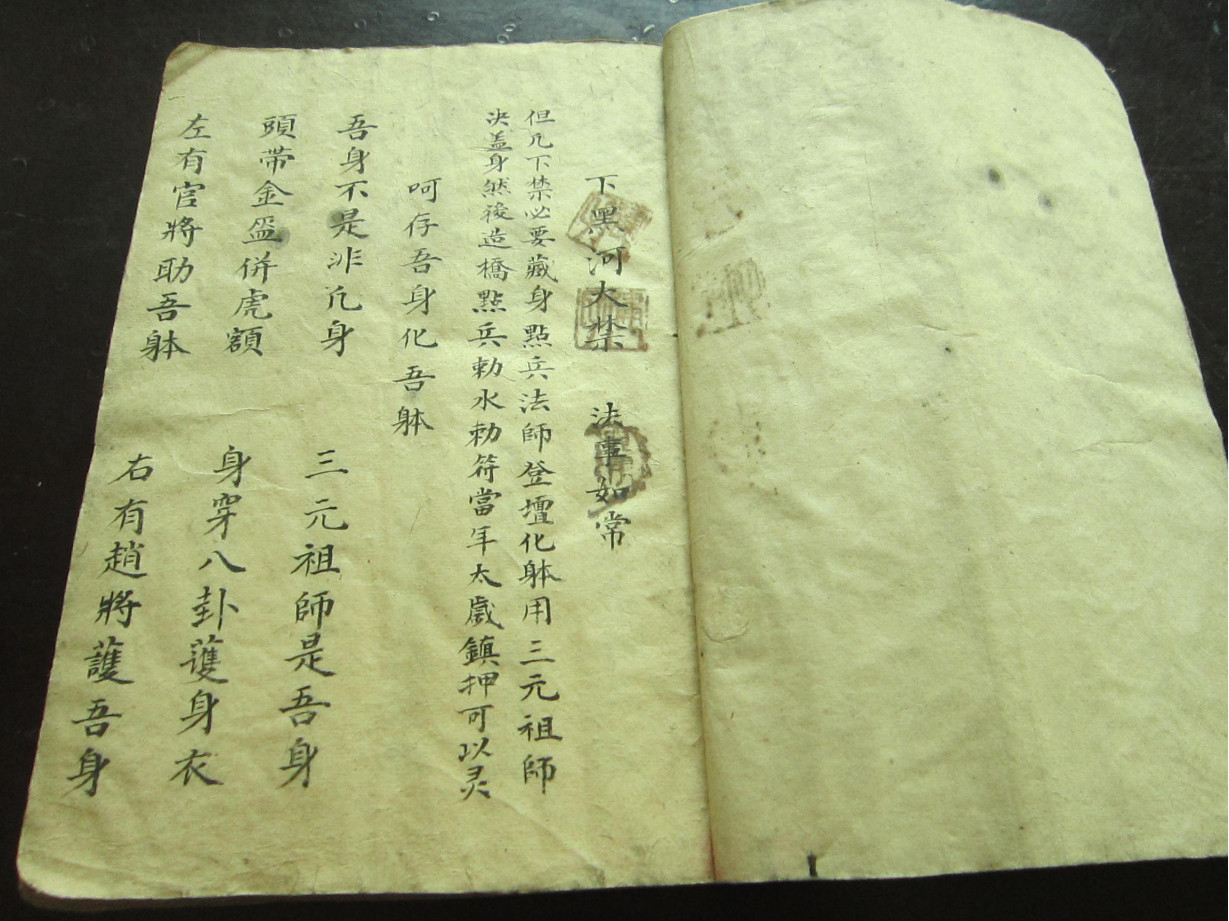 下黑河大禁 法事如常
但凡下禁必要藏身點兵法師登壇化躰用三元祖師
決盖身然後造橋點兵勅水勅符當年太歲鎮押可以灵
呵存吾身化吾躰
吾身不是非凡身 三元祖師是吾身
頭帶金盔併虎額 身穿八卦護身衣
左有官將助吾躰 右有趙將護吾身